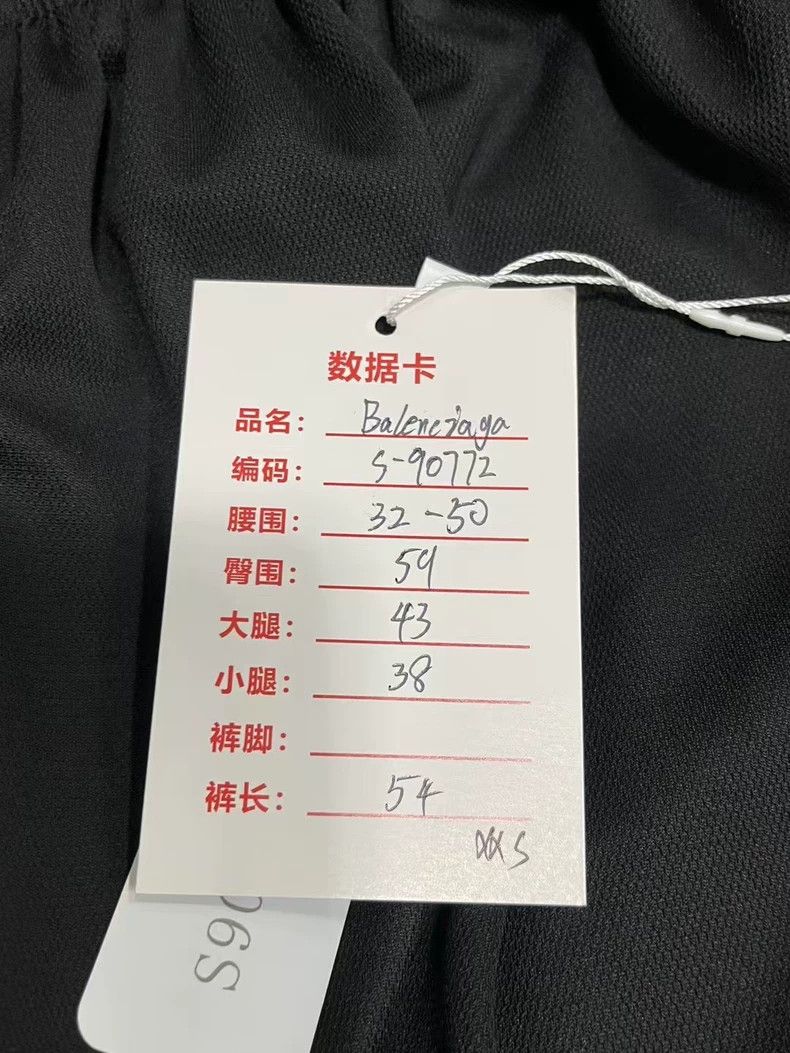 数据卡
品名: Balenciaga
编码: S-90772
腰围: 32-50
臀围: 59
大腿: 43
小腿: 38
裤脚:
裤长: 54
XXS